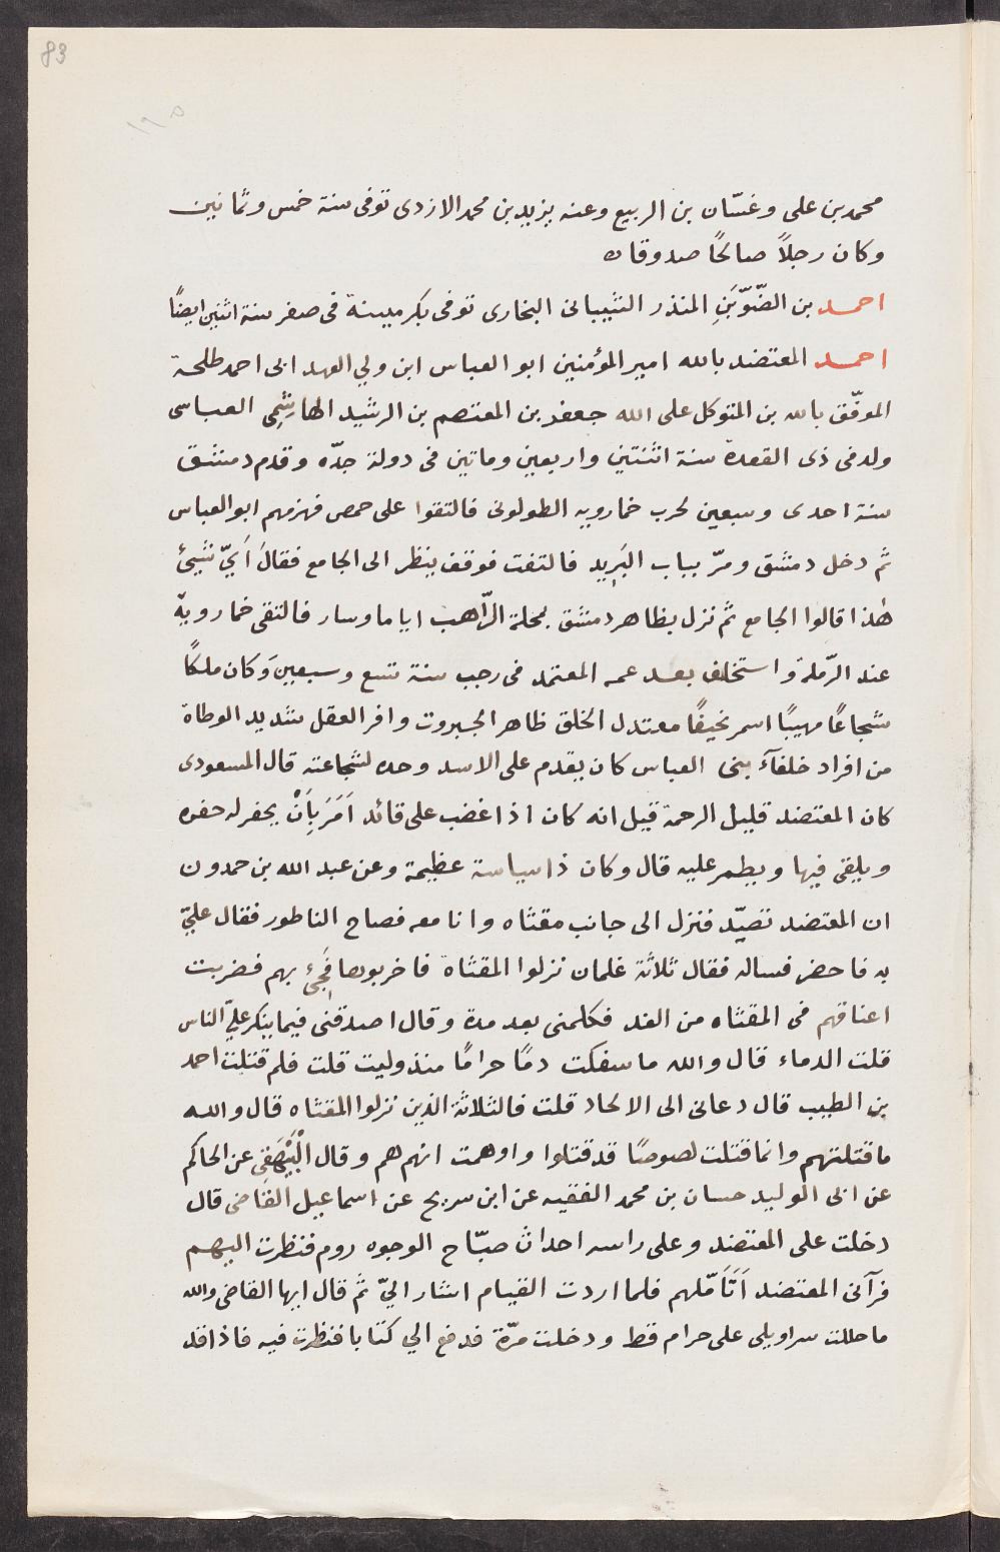 83
١٩٥
محمد بن على وغسّان بن الربيع وعنه يزيد بن محمد الازدى توفى سنة خمس وثمانين
وكان رجلاً صالحًا صدوقا ٥
احمد بن الضّوّبَنِ المنذر الشيبانى البخارى توفى بكرمينة فى صفر سنة اثنين ايضًا
احمد المعتضد بالله امير المؤمنين ابو العباس ابن ولي العهد ابى احمد طلحة
الموفّق بالله بن المتوكل على الله جعفر بن المعتصم بن الرشيد الهاشِمِى العباسى
ولد فى ذى القعدة سنة اثنتين واربعين وماتين فى دولة جدّه وقدم دمشق
سنة احدى وسبعين لحرب خمارويه الطولونى فالتقوا على حمص فهزمهم ابو العباس
ثم دخل دمشق ومرّ بباب البَرِيد فالتفت فوقف ينظر الى الجامع فقالَ اَيّ شَيئ
هٰذا قالوا الجامع ثم نزل بظاهر دمشق بمحلة الرّاهب اياما وسار فالتقى خمارويهْ
عند الرّملة واستخلف بعد عمه المعتمد فى رجب سنة تسع وسبعينَ وَكان ملكًا
شجاعًا مهيبًا اسمر نحيفًا معتدل الخلق ظاهر الجبروت وافر العقل شديد الوطاة
من افراد خلفآء بنى العباس كان يقدم على الاسد وحده لشجاعته قال المسعودى
كان المعتضد قليل الرحمة قيل انه كان اذا غضب على قائد اَمَرَ بِاَنْ يحفر له حفره
ويلقى فيها ويطمر عليه قال وكان ذا سياسة عظيمة وعن عبد الله بن حمدون
ان المعتضد تصيّد فنزل الى جانب مقثاه وانا معه فصاح الناطور فقال عليّ
به فاحضر فساله فقال ثلاثة غلمان نزلوا المقثاة فاخربوها فَجِئ بهم فضربت
اعناقهم فى المقثاه من الغد فكلمنى بعد مدة وقال اصدقنى فيما ينكر عليّ الناس
قلت الدماء قال والله ما سفكت دمًا حرامًا منذ وليت قلت فلم قتلت احمد
بن الطيب قال دعانى الى الالحاد قلت فالثلاثة الذين نزلوا المقثاه قال والله
ما قتلتهم وانما قتلت لصوصًا قد قتلوا واوهمت انهم هم وقال الْبَيْهَقِى عن الحاكم
عن ابى الوليد حسان بن محمد الفقيه عن ابن سريج عن اسماعيل القاضى قال
دخلت على المعتضد وعلى راسه احداث صبّاح الوجوه روم فنظرت اليهم
فرآنى المعتضد اَتَأَمّلهم فلما اردت القيام اشار اليّ ثم قال ايها القاضى والله
ما حللت سراويلى على حرام قط ودخلت مرّة فدفع الي كتابا فنظرت فيه فاذا قد